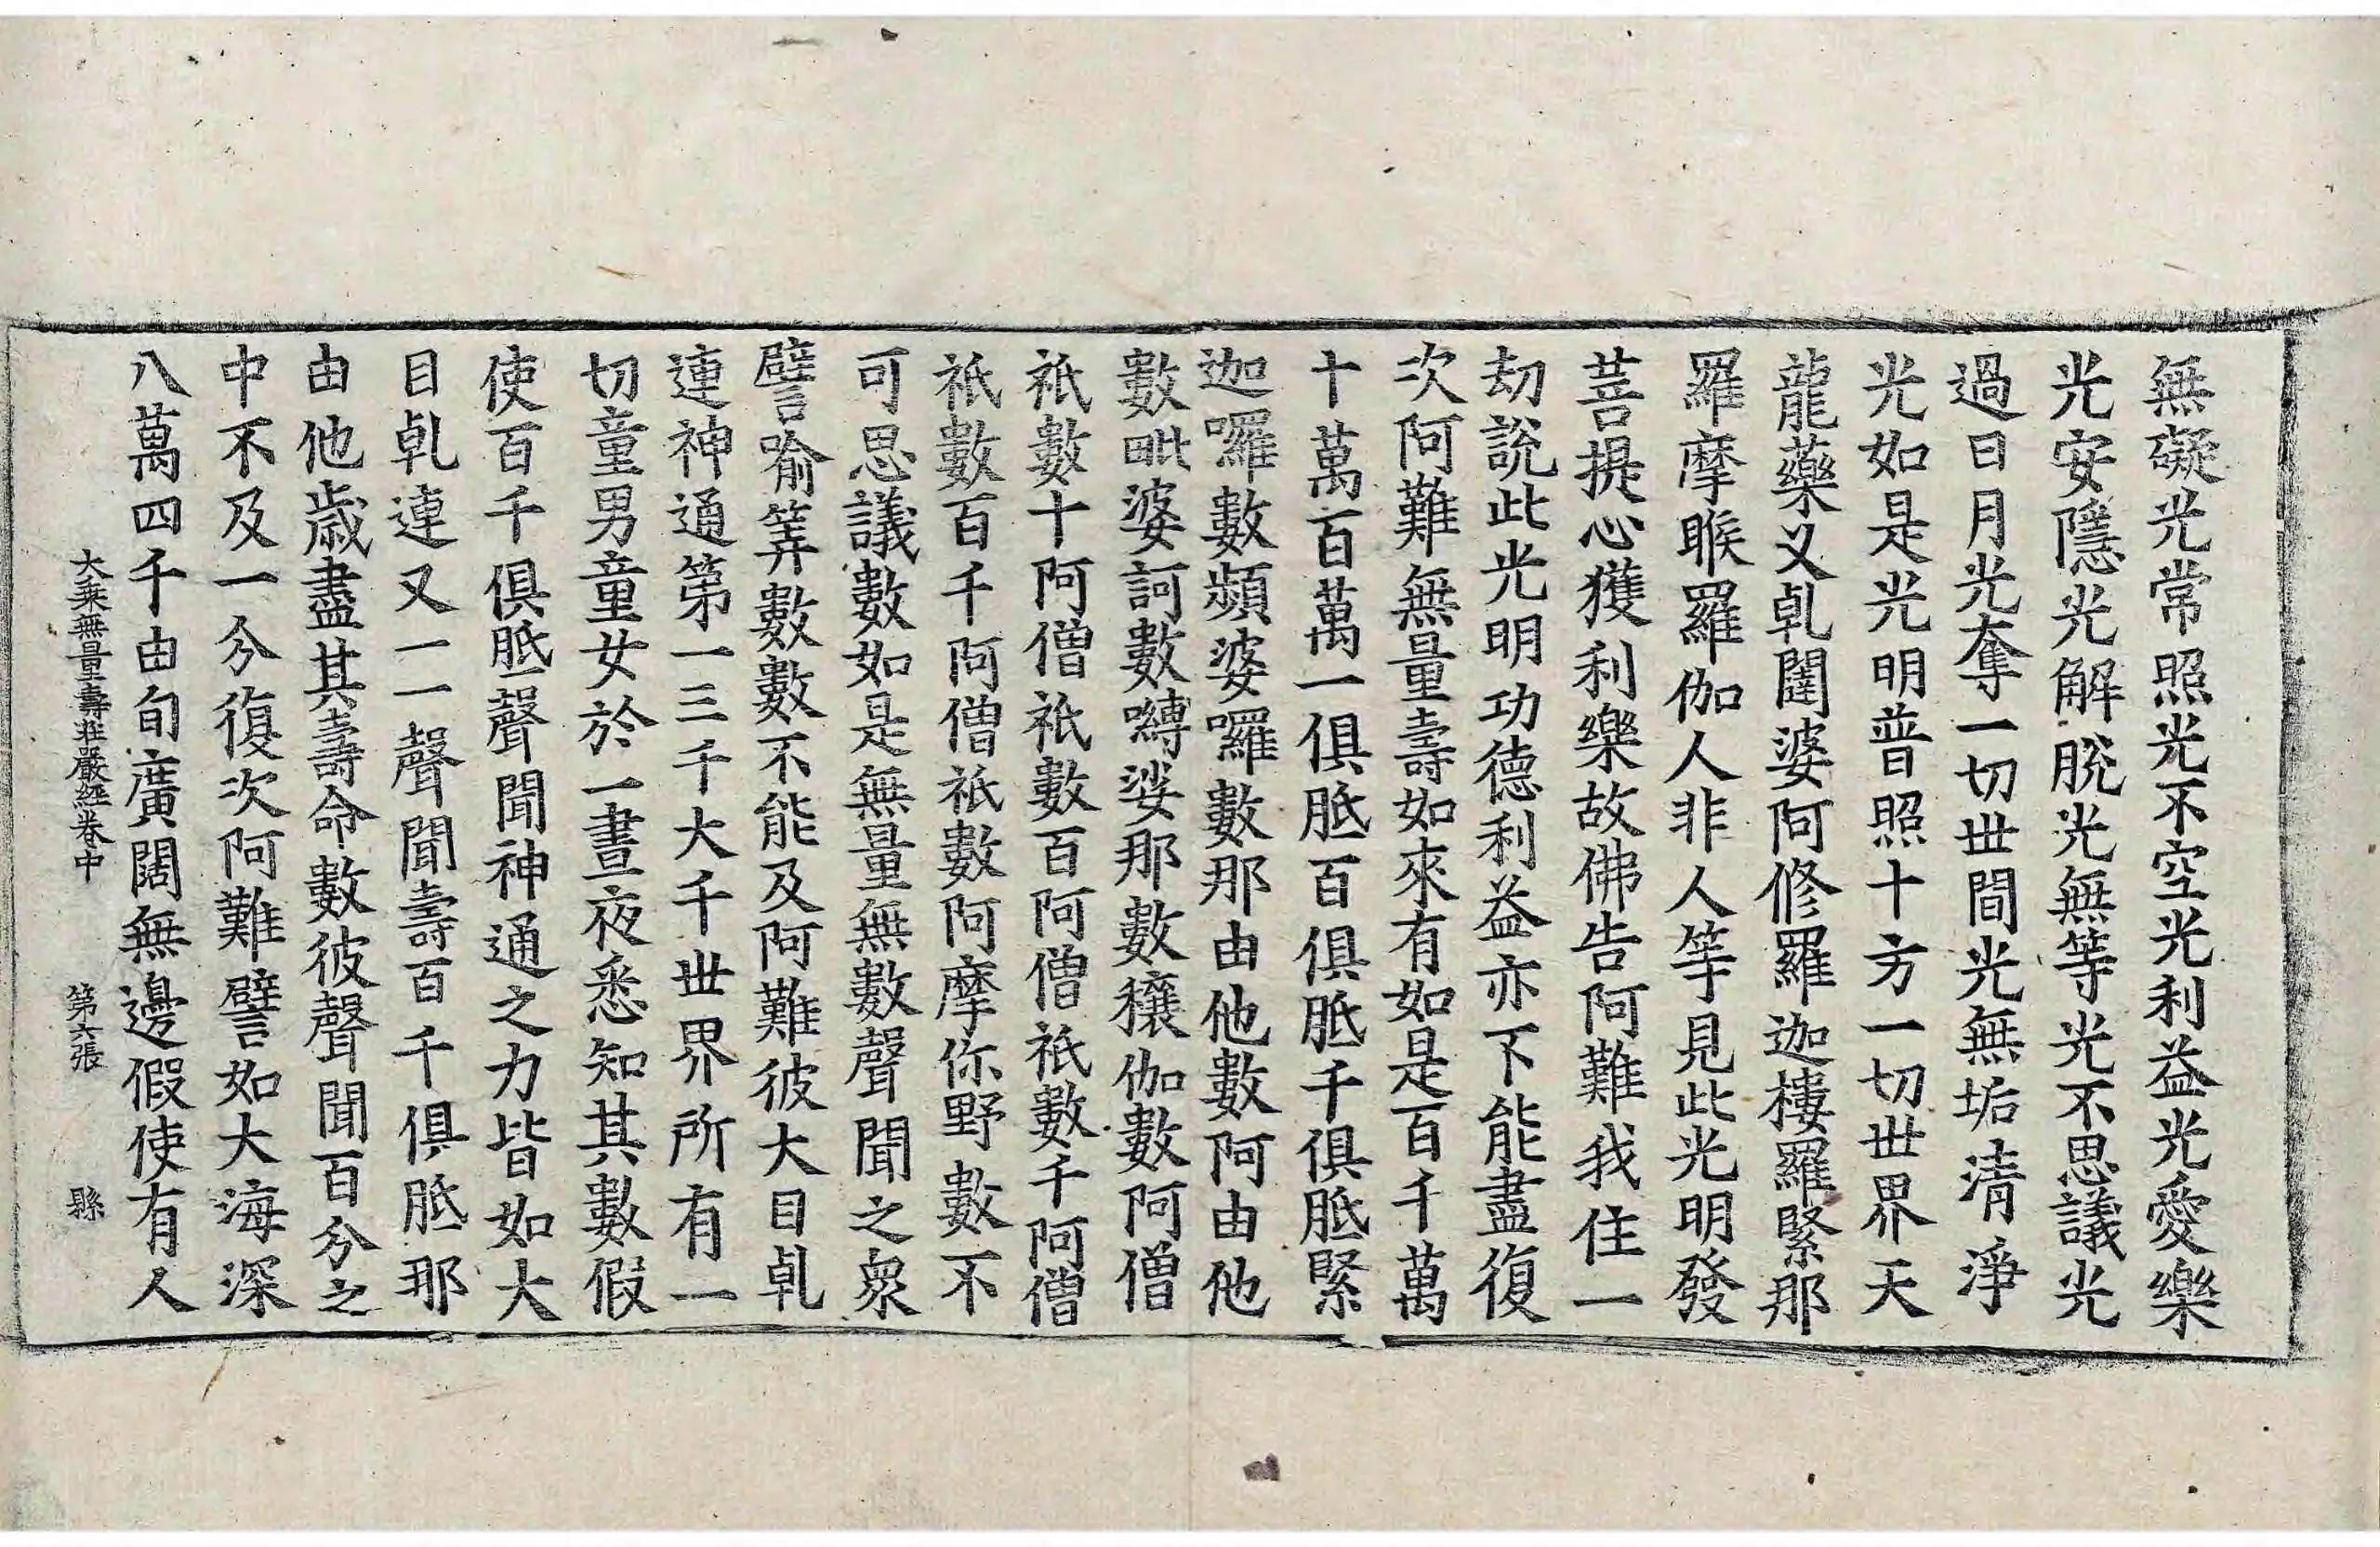 無礙光常照光不空光利益光愛樂
光安隱光解脫光無等光不思議光
過日月光奪一切世間光無垢清淨
光如是光明普照十方一切世界天
龍藥叉乹闥婆阿修羅迦樓羅緊那
羅摩睺羅伽人非人等見此光明發
菩提心獲利樂故佛告阿難我住一
劫說此光明功德利益亦不能盡復
次阿難無量壽如來有如是百千萬
十萬百萬一俱胝百俱胝千俱胝緊
迦囉數頻婆囉數那由他數阿由他
數毗婆訶數嚩娑那數穰伽數阿僧
祇數十阿僧祇數百阿僧祇數千阿僧
祇數百千阿僧祇數阿摩你野數不
可思議數如是無量無數聲聞之衆
譬喻筭數數不能及阿難彼大目乹
連神通第一三千大千世界所有一
切童男童女於一晝夜悉知其數假
使百千俱胝聲聞神通之力皆如大
目乹連又一一聲聞壽百千俱胝那
由他歲盡其壽命數彼聲聞百分之
中不及一分復次阿難譬如大海深
八萬四千由旬廣闊無邊假使有人
大乘無量壽莊嚴經卷中 第六張 縣